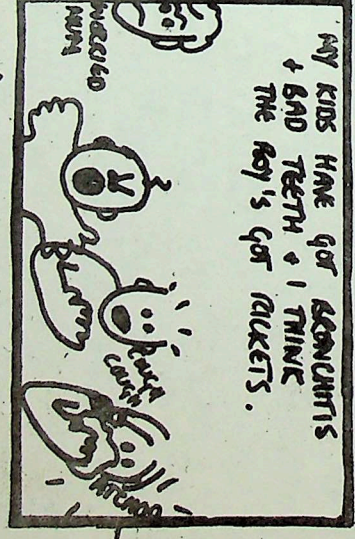 MY KIDS HAVE GOT BRONCHITIS
+ BAD TEETH & I THINK
THE BOY'S GOT RICKETS.
WORRIED
MUM
COUGH
COUGH